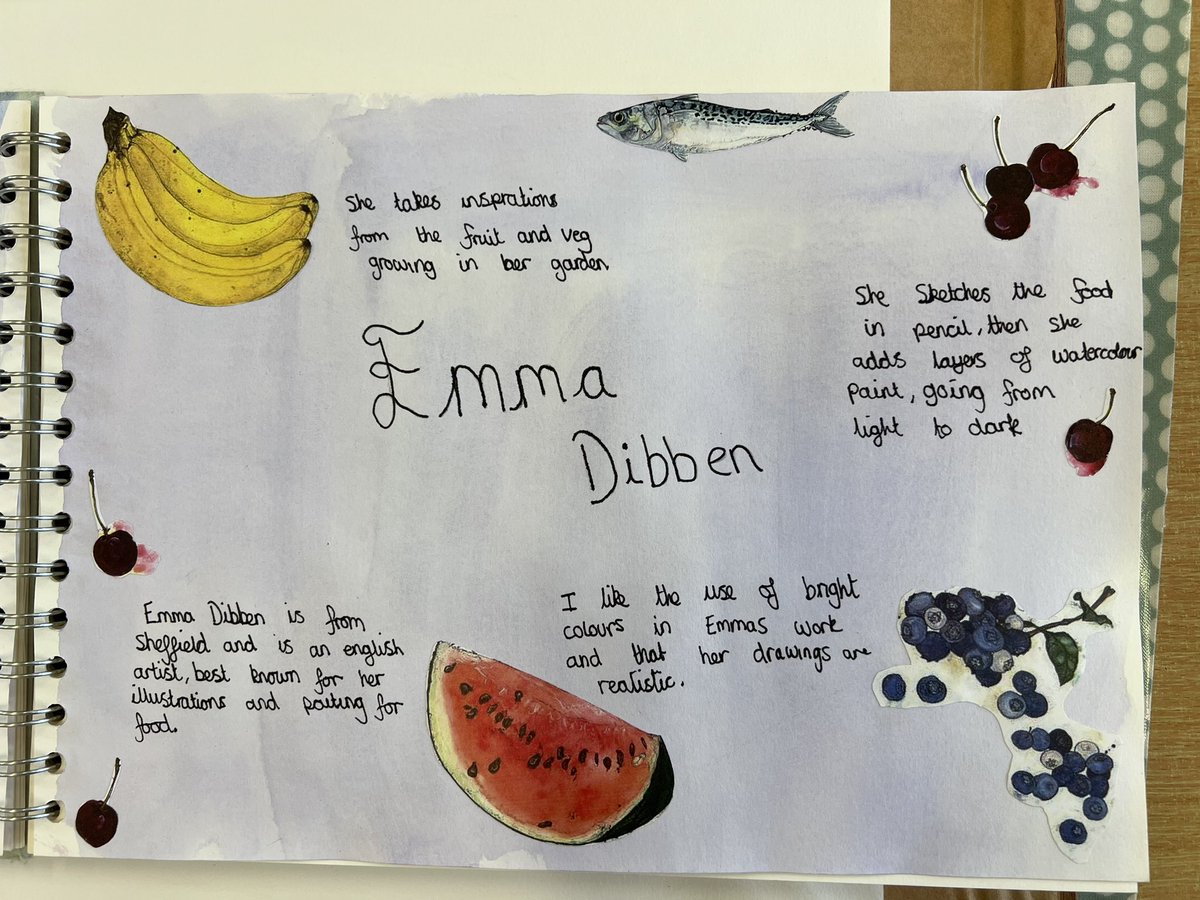 She takes insprations
from the fruit and veg
growing in her garden.
Emma
Dibben
She Sketches the food
in pencil, then she
adds layers of watercolour
paint, going from
light to dark
Emma Dibben is from
Sheffield and is an english
artist, best known for her
illustrations and paiting for
food.
I like the use of bright
colours in Emmas work
and that her drawings are
realistic.